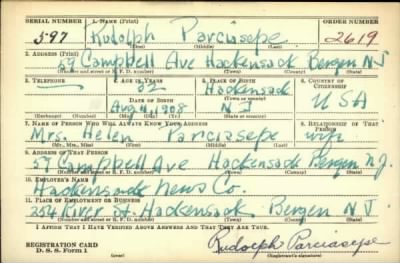 SERIAL NUMBER 1. NAME (Print) ORDER NUMBER
597 Rudolph Parciasepe 2619
(First) (Middle) (Last)
2. ADDRESS (Print)
59 Campbell Ave Hackensack Bergen N J
(Number and street or R. F. D. number) (Town) (County) (State)
3. TELEPHONE 4. AGE IN YEARS 5. PLACE OF BIRTH 6. COUNTRY OF CITIZENSHIP
32 Hackensack
DATE OF BIRTH (Town or county) USA
Aug 4, 1908 N J
(Exchange) (Number) (Mo.) (Day) (Yr.) (State or country)
7. NAME OF PERSON WHO WILL ALWAYS KNOW YOUR ADDRESS 8. RELATIONSHIP OF THAT PERSON
Mrs. Helen Parciasepe wife
(Mr., Mrs., Miss) (First) (Middle) (Last)
9. ADDRESS OF THAT PERSON
59 Campbell Ave Hackensack Bergen N.J.
(Number and street or R. F. D. number) (Town) (County) (State)
10. EMPLOYER'S NAME
Hackensack News Co.
11. PLACE OF EMPLOYMENT OR BUSINESS
254 River St. Hackensack Bergen N J.
(Number and street or R. F. D. number) (Town) (County) (State)
I AFFIRM THAT I HAVE VERIFIED ABOVE ANSWERS AND THAT THEY ARE TRUE.
REGISTRATION CARD
D. S. S. Form 1 Rudolph Parciasepe
(Registrant's signature)